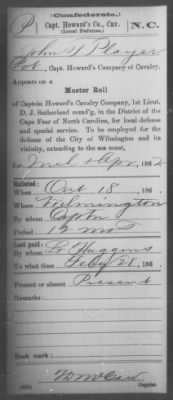 (Confederate.)
P | Capt. Howard's Co., Cav. (Local Defense.) | N.C.
John W Player
Pvt, Capt. Howard's Company of Cavalry.
Appears on a
Muster Roll
of Captain Howard's Cavalry Company, 1st Lieut.
D. J. Sutherland comd'g, in the District of the
Cape Fear of North Carolina, for local defense
and special service. To be employed for the
defense of the City of Wilmington and its
vicinity, extending to the sea coast,
for Mch & Apr, 186
Enlisted:
When Oct 18, 186
Where Wilmington
By whom Capt
Period 12 mos
Last paid:
By whom Huggins
To what time Feby 28, 186
Present or absent Present
Remarks:
Book mark:
Copyist.